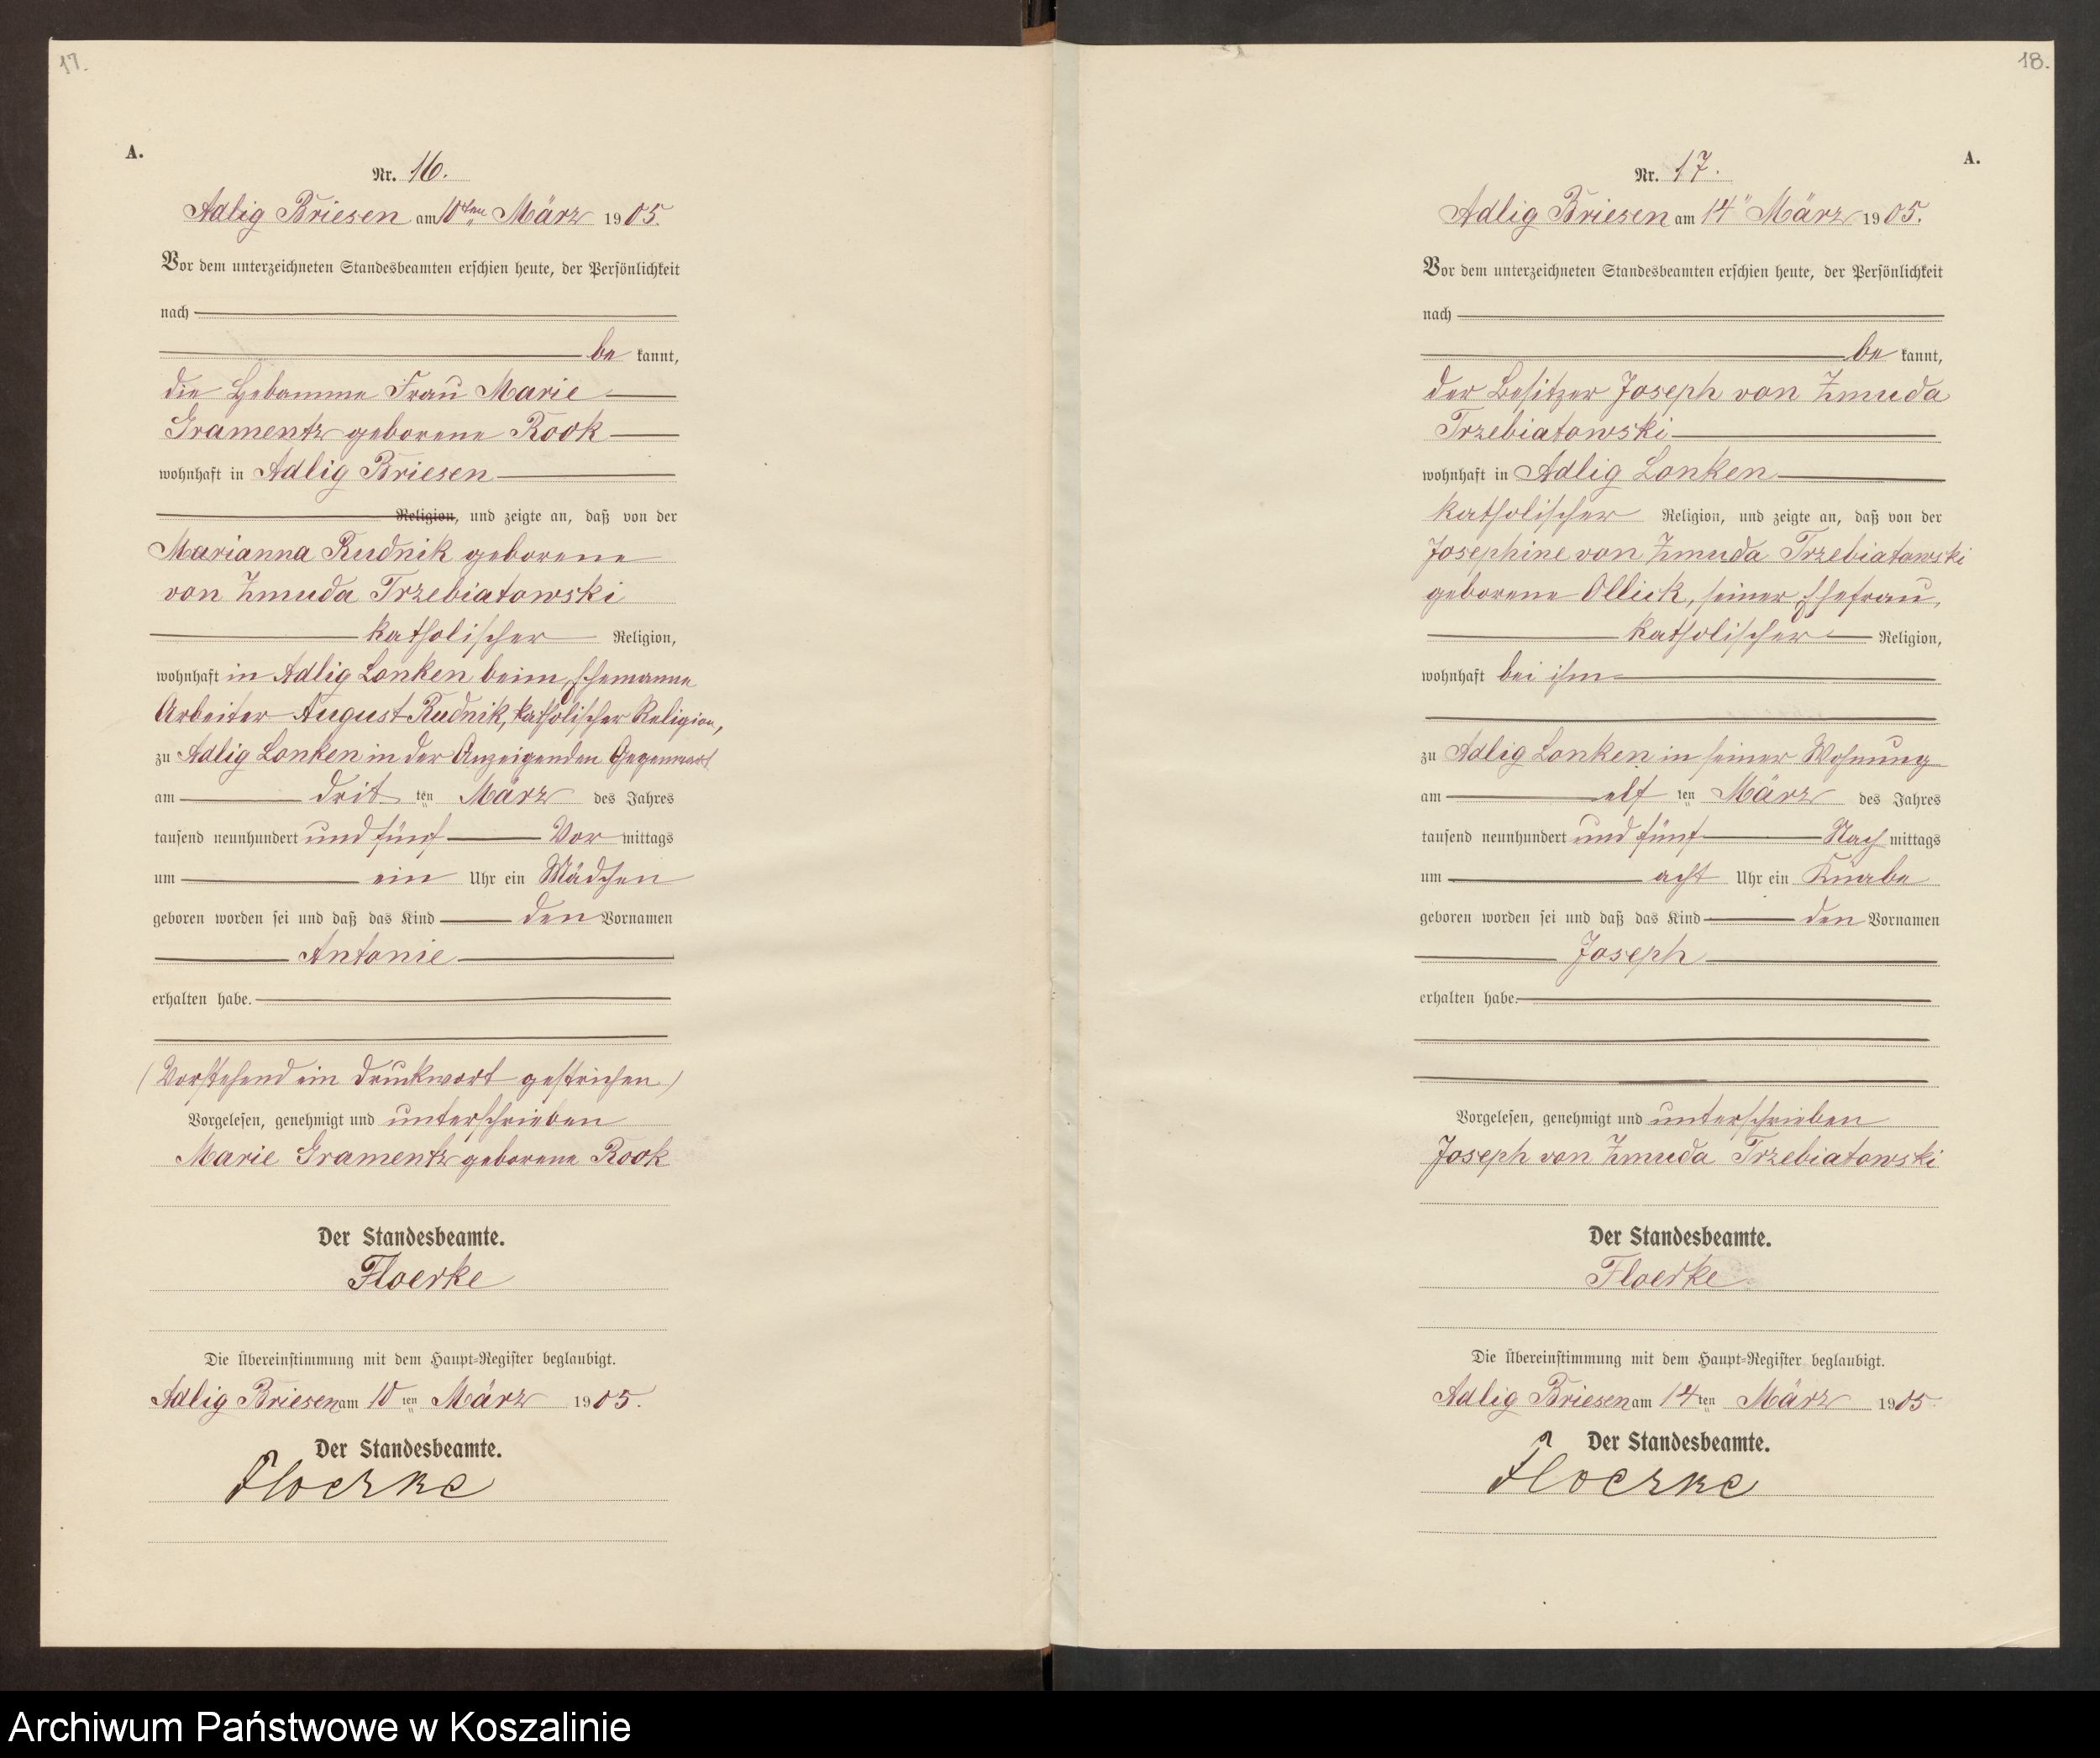 17.
A.
Nr. 16.
Adlig Briesen am 10ten März 1905.
Vor dem unterzeichneten Standesbeamten erschien heute, der Persönlichkeit
nach
be kannt,
die Hebamme Frau Marie
Gramentz geborene Rook
wohnhaft in Adlig Briesen
Religion, und zeigte an, daß von der
Marianna Rudnik geborene
von Zmuda Trzebiatowski
katholischer Religion,
wohnhaft in Adlig Lonken beim Ehemanne
Arbeiter August Rudnik, katholischer Religion,
zu Adlig Lonken in der Anzeigenden Gegenwart
am dritten März des Jahres
tausend neunhundert und fünf Vor mittags
um ein Uhr ein Mädchen
geboren worden sei und daß das Kind den Vornamen
Antonie
erhalten habe.
(Vorstehend ein Druckwort gestrichen)
Vorgelesen, genehmigt und unterschrieben
Marie Gramentz geborene Rook
Der Standesbeamte.
Floerke
Die Übereinstimmung mit dem Haupt-Register beglaubigt.
Adlig Briesen am 10ten März 1905.
Der Standesbeamte.
Floerke
18.
A.
Nr. 17.
Adlig Briesen am 14" März 1905.
Vor dem unterzeichneten Standesbeamten erschien heute, der Persönlichkeit
nach
be kannt,
der Besitzer Joseph von Zmuda
Trzebiatowski
wohnhaft in Adlig Lonken
katholischer Religion, und zeigte an, daß von der
Josephine von Zmuda Trzebiatowski
geborene Ollick, seiner Ehefrau,
katholischer Religion,
wohnhaft bei ihm
zu Adlig Lonken in seiner Wohnung
am elf ten März des Jahres
tausend neunhundert und fünf Nach mittags
um acht Uhr ein Knabe
geboren worden sei und daß das Kind den Vornamen
Joseph
erhalten habe.
Vorgelesen, genehmigt und unterschrieben
Joseph von Zmuda Trzebiatowski
Der Standesbeamte.
Floerke
Die Übereinstimmung mit dem Haupt-Register beglaubigt.
Adlig Briesen am 14ten März 1905.
Der Standesbeamte.
Floerke
Archiwum Państwowe w Koszalinie